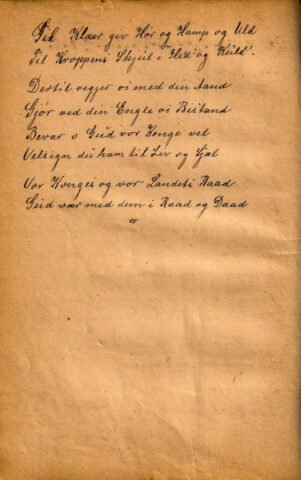 Til Klæer giv Hør og Hamp og Uld
Til Kroppens Skjul i Hed og Kuld'
Dertil vegjer os med din Aand
Gjør ved din Engle os Bistand
Bevar o Gud vor Konge vel
Velsign du ham til Liv og Sjæl
Vor Konges og vor Landets Raad
Gud vær med dem i Raad og Daad